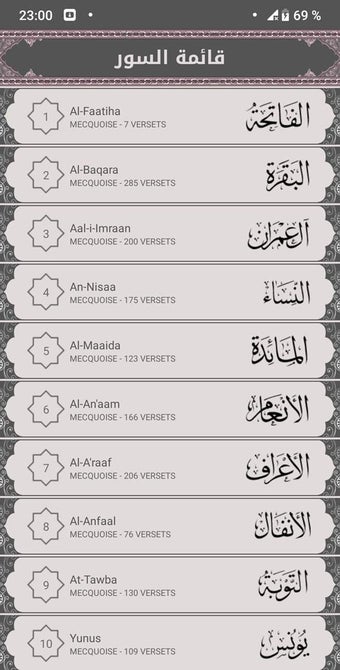 23:00 69 %
قائمة السور
1 Al-Faatiha الفَاتِحَةُ
MECQUOISE - 7 VERSETS
2 Al-Baqara البَقَرَة
MECQUOISE - 285 VERSETS
3 Aal-i-Imraan آل عِمْرَان
MECQUOISE - 200 VERSETS
4 An-Nisaa النِّسَاء
MECQUOISE - 175 VERSETS
5 Al-Maaida المَائِدَة
MECQUOISE - 123 VERSETS
6 Al-An'aam الأَنْعَام
MECQUOISE - 166 VERSETS
7 Al-A'raaf الأَعْرَاف
MECQUOISE - 206 VERSETS
8 Al-Anfaal الأَنْفَال
MECQUOISE - 76 VERSETS
9 At-Tawba التَّوْبَة
MECQUOISE - 130 VERSETS
10 Yunus يُونُس
MECQUOISE - 109 VERSETS